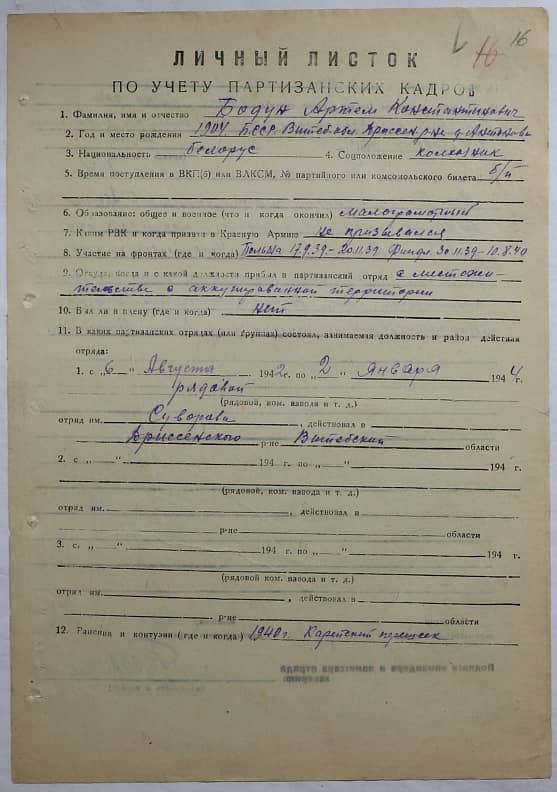 16 16
ЛИЧНЫЙ ЛИСТОК
ПО УЧЕТУ ПАРТИЗАНСКИХ КАДРОВ
1. Фамилия, имя и отчество Бодун Артем Константинович
2. Год и место рождения 1904 БССР Витебской Дриссен р-не д.
3. Национальность белорус 4. Соцположение колхозник
5. Время поступления в ВКП(б) или ВЛКСМ, № партийного или комсомольского билета б/п
6. Образование: общее и военное (что и когда окончил) малограмотный
7. Каким РВК и когда призван в Красную Армию не призывался
8. Участие на фронтах (где и когда) Польша 17.9.39-20.11.39 Финл. 30.11.39-10.8.40
9. Откуда, когда и с какой должности прибыл в партизанский отряд с местожи-
тельство о аккупированной территории
10. Был ли в плену (где и когда) нет
11. В каких партизанских отрядах (или группах) состоял, занимаемая должность и район действия
отряда:
1. с „6“ Августа 1942 г. по „2“ января 1944 г.
рядовой
(рядовой, ком. взвода и т. д.)
отряд им. Суворова, действовал в
Дриссенского р-не Витебский области
2. с „ “ 194 г. по „ “ 194 г.
(рядовой, ком. взвода и т. д.)
отряд им. , действовал в
р-не области
3. с „ “ 194 г. по „ “ 194 г.
(рядовой, ком. взвода и т. д.)
отряд им. , действовал в
р-не области
12. Ранения и контузии (где и когда) 1940 г. Карельский перешеек